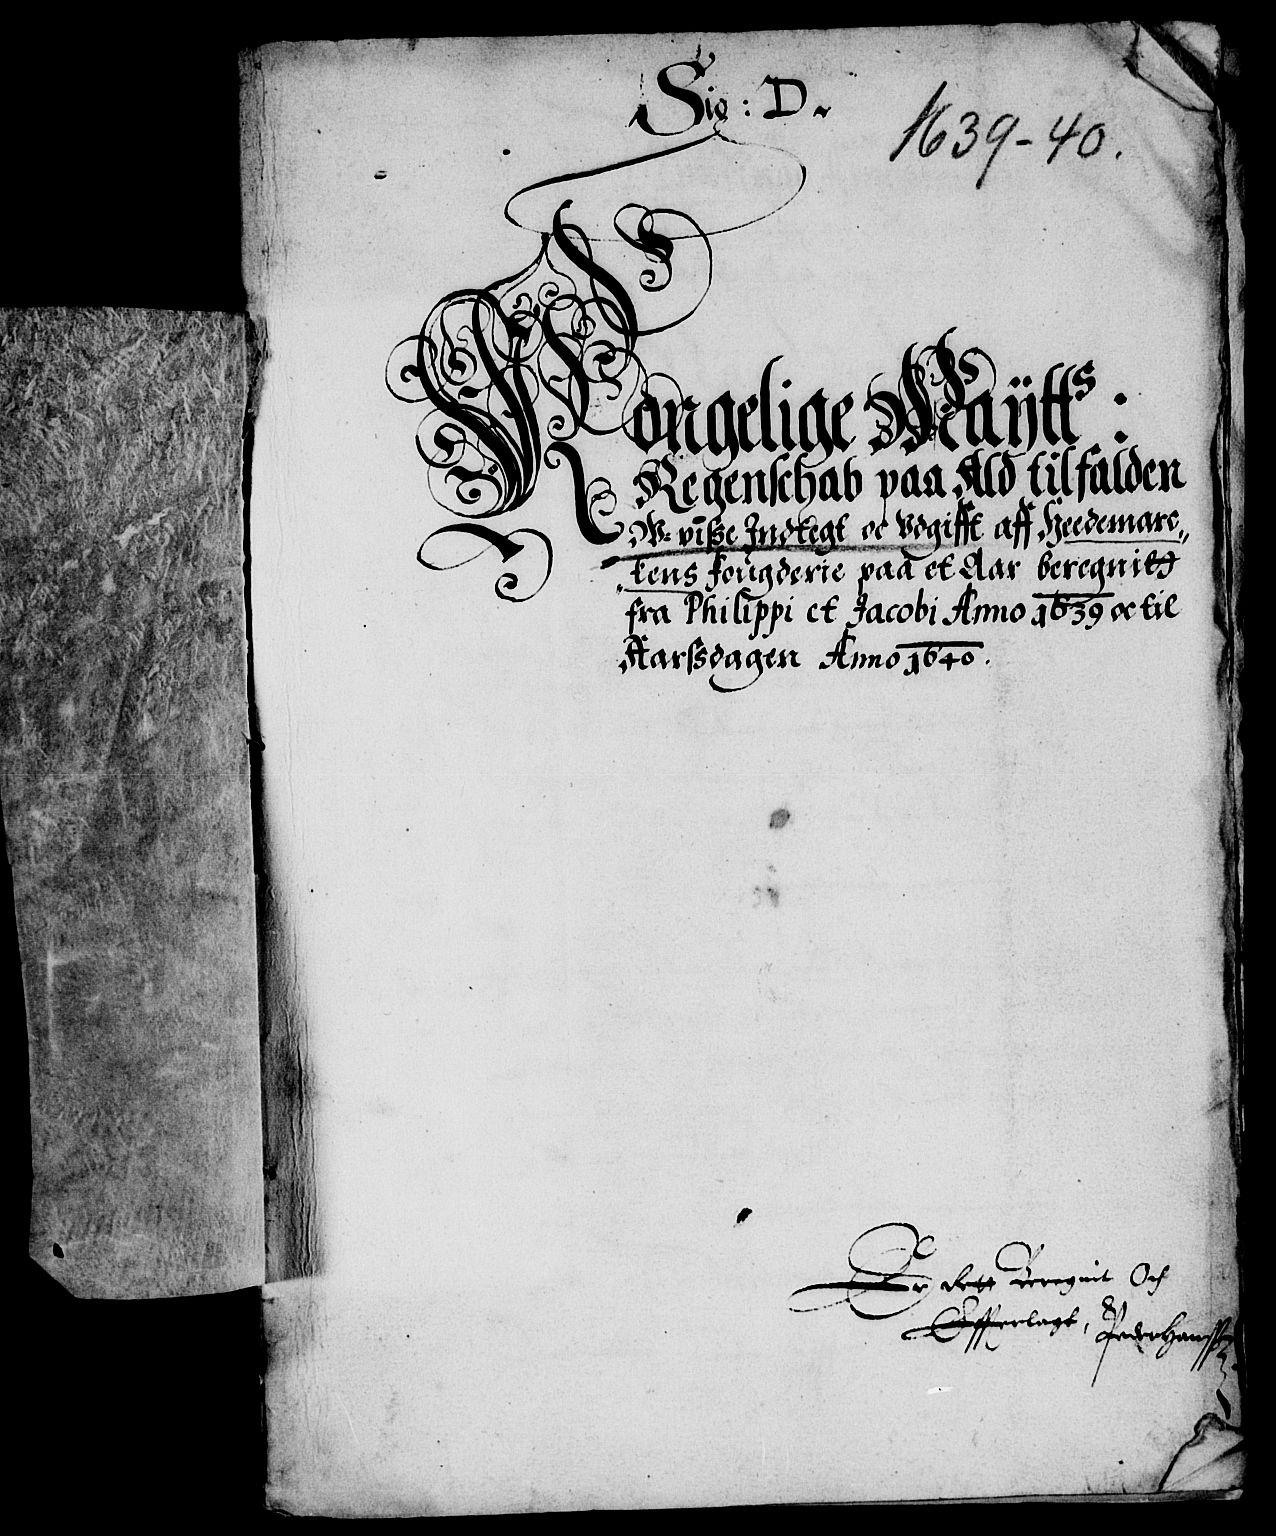 Sig: D.
1639-40.
Kongelige Maÿtts:
Regenschab paa Ald tilfalden
W: visse Indtegt oc Vdgifft aff Heedemarc,,
kens fougderie paa et Aar beregnitt
fra Philippi et Jacobi Anno 1639 oc til
Aarssdagen Anno 1640.
Er dett Beregnit Och
Offuerlagt, Peder Hanssen